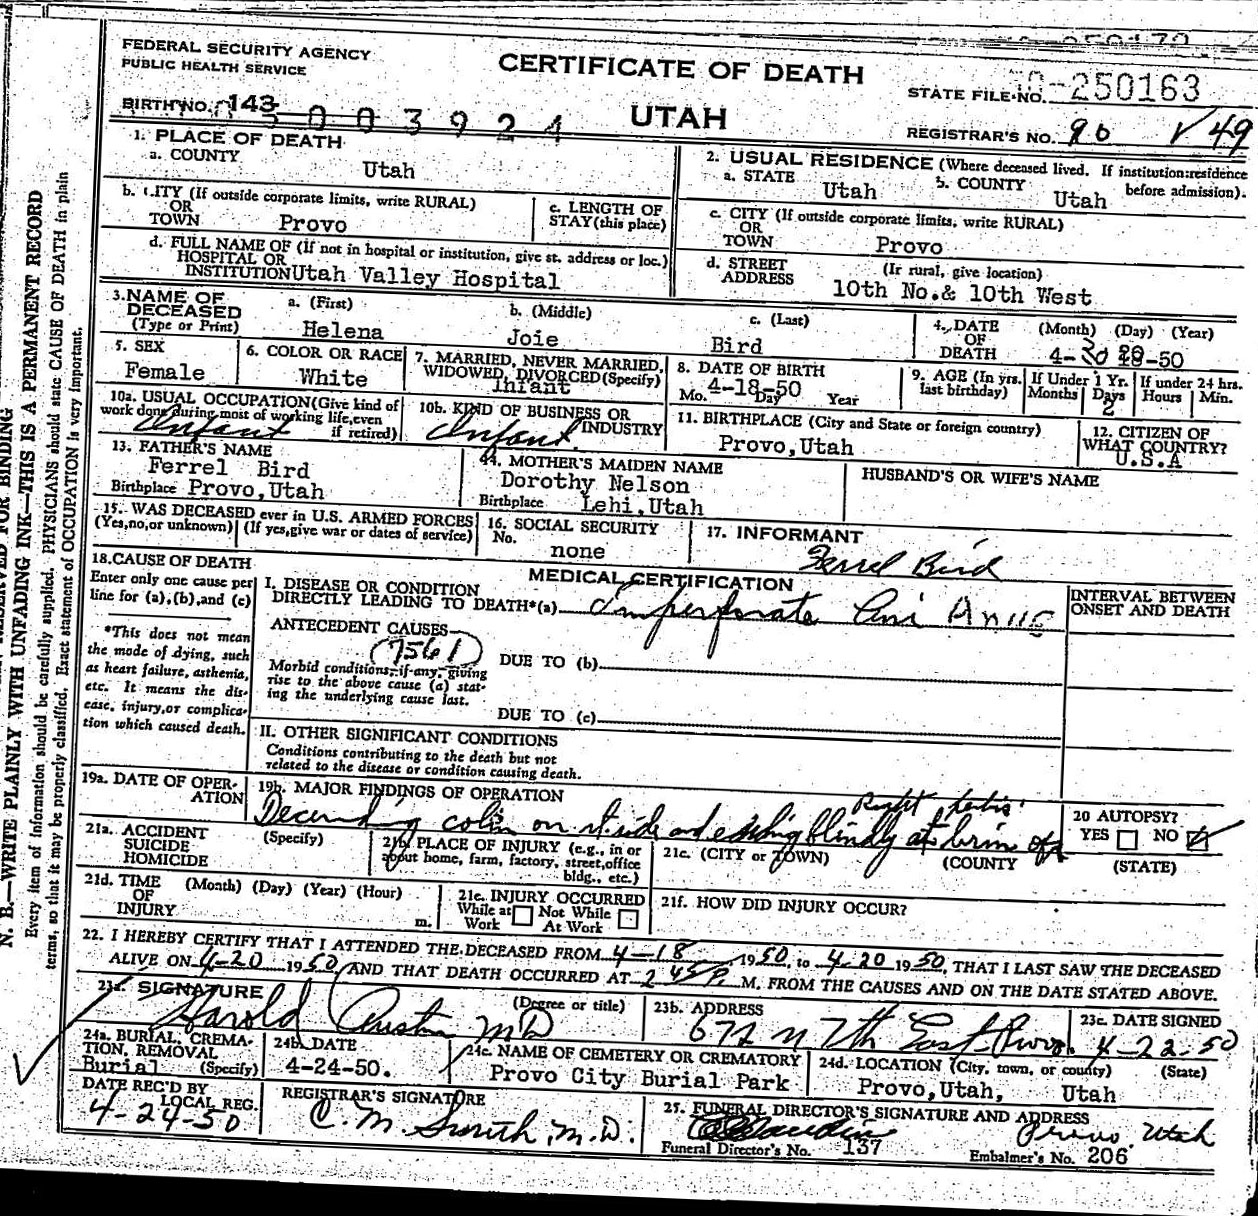 FEDERAL SECURITY AGENCY
PUBLIC HEALTH SERVICE
CERTIFICATE OF DEATH
STATE FILE NO. 250163
BIRTH NO. 143 003924
UTAH
REGISTRAR'S NO. 90 ✓ 49
1. PLACE OF DEATH
a. COUNTY
Utah
2. USUAL RESIDENCE (Where deceased lived. If institution: residence before admission).
a. STATE Utah b. COUNTY Utah
b. CITY (If outside corporate limits, write RURAL)
OR TOWN Provo
c. LENGTH OF STAY (this place)
c. CITY (If outside corporate limits, write RURAL)
OR TOWN Provo
d. FULL NAME OF (If not in hospital or institution, give st. address or loc.)
HOSPITAL OR INSTITUTION Utah Valley Hospital
d. STREET ADDRESS (Ir rural, give location)
10th No.& 10th West
3. NAME OF DECEASED (Type or Print)
a. (First) Helena
b. (Middle) Joie
c. (Last) Bird
4. DATE OF DEATH (Month) (Day) (Year)
4-20-50
5. SEX Female
6. COLOR OR RACE White
7. MARRIED, NEVER MARRIED, WIDOWED, DIVORCED (Specify) Infant
8. DATE OF BIRTH
4-18-50
Mo. Day Year
9. AGE (In yrs. last birthday)
If Under 1 Yr. Months Days 2
If under 24 hrs. Hours Min.
10a. USUAL OCCUPATION (Give kind of work done during most of working life, even if retired) Infant
10b. KIND OF BUSINESS OR INDUSTRY Infant
11. BIRTHPLACE (City and State or foreign country)
Provo,Utah
12. CITIZEN OF WHAT COUNTRY?
U.S.A
13. FATHER'S NAME
Ferrel Bird
Birthplace Provo,Utah
14. MOTHER'S MAIDEN NAME
Dorothy Nelson
Birthplace Lehi,Utah
HUSBAND'S OR WIFE'S NAME
15. WAS DECEASED ever in U.S. ARMED FORCES
(Yes,no,or unknown) (If yes,give war or dates of service)
16. SOCIAL SECURITY
No. none
17. INFORMANT
Ferrel Bird
18. CAUSE OF DEATH
Enter only one cause per line for (a),(b),and (c)
MEDICAL CERTIFICATION
INTERVAL BETWEEN ONSET AND DEATH
I. DISEASE OR CONDITION
DIRECTLY LEADING TO DEATH*(a) Imperforate Ani Anus
*This does not mean the mode of dying, such as heart failure, asthenia, etc. It means the disease, injury, or complication which caused death.
ANTECEDENT CAUSES
(7561)
DUE TO (b)
Morbid conditions, if any, giving rise to the above cause (a) stating the underlying cause last.
DUE TO (c)
II. OTHER SIGNIFICANT CONDITIONS
Conditions contributing to the death but not related to the disease or condition causing death.
19a. DATE OF OPERATION
19b. MAJOR FINDINGS OF OPERATION
Right
on rt side and blindly at brim of
20 AUTOPSY?
YES NO
21a. ACCIDENT SUICIDE HOMICIDE (Specify)
21b. PLACE OF INJURY (e.g., in or about home, farm, factory, street, office bldg., etc.)
21c. (CITY or TOWN) (COUNTY) (STATE)
21d. TIME OF INJURY (Month) (Day) (Year) (Hour) m.
21e. INJURY OCCURRED
While at Work Not While At Work
21f. HOW DID INJURY OCCUR?
22. I HEREBY CERTIFY THAT I ATTENDED THE DECEASED FROM 4-18 1950, to 4-20 1950, THAT I LAST SAW THE DECEASED
ALIVE ON 4-20 1950, AND THAT DEATH OCCURRED AT 2 45 P. M, FROM THE CAUSES AND ON THE DATE STATED ABOVE.
23a. SIGNATURE (Degree or title)
Harold Austin MD
23b. ADDRESS
672 N 7th East Provo.
23c. DATE SIGNED
4-22-50
24a. BURIAL, CREMATION, REMOVAL (Specify) Burial
24b. DATE
4-24-50.
24c. NAME OF CEMETERY OR CREMATORY
Provo City Burial Park
24d. LOCATION (City, town, or county) (State)
Provo,Utah, Utah
DATE REC'D BY LOCAL REG.
4-24-50
REGISTRAR'S SIGNATURE
C. M. Smith, M.D.
25. FUNERAL DIRECTOR'S SIGNATURE AND ADDRESS
Provo, Utah
Funeral Director's No. 137
Embalmer's No. 206
N. B.—WRITE PLAINLY WITH UNFADING INK—THIS IS A PERMANENT RECORD
Every item of Information should be carefully supplied. PHYSICIANS should state CAUSE OF DEATH in plain
terms, so that it may be properly classified. Exact statement of OCCUPATION is very important.
RESERVED FOR BINDING